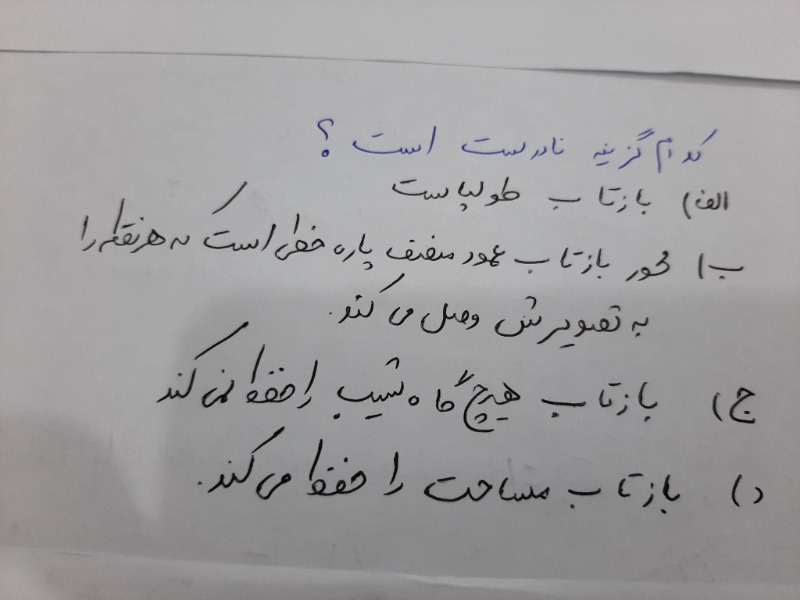 کدام گزینه نادرست است ؟
الف) بازتاب طولپاست
ب) محور بازتاب عمود منصف پاره خطی است که هر نقطه را
به تصویرش وصل می کند.
ج) بازتاب هیچ گاه شیب را حفظ نمی کند
د) بازتاب مساحت را حفظ می کند.